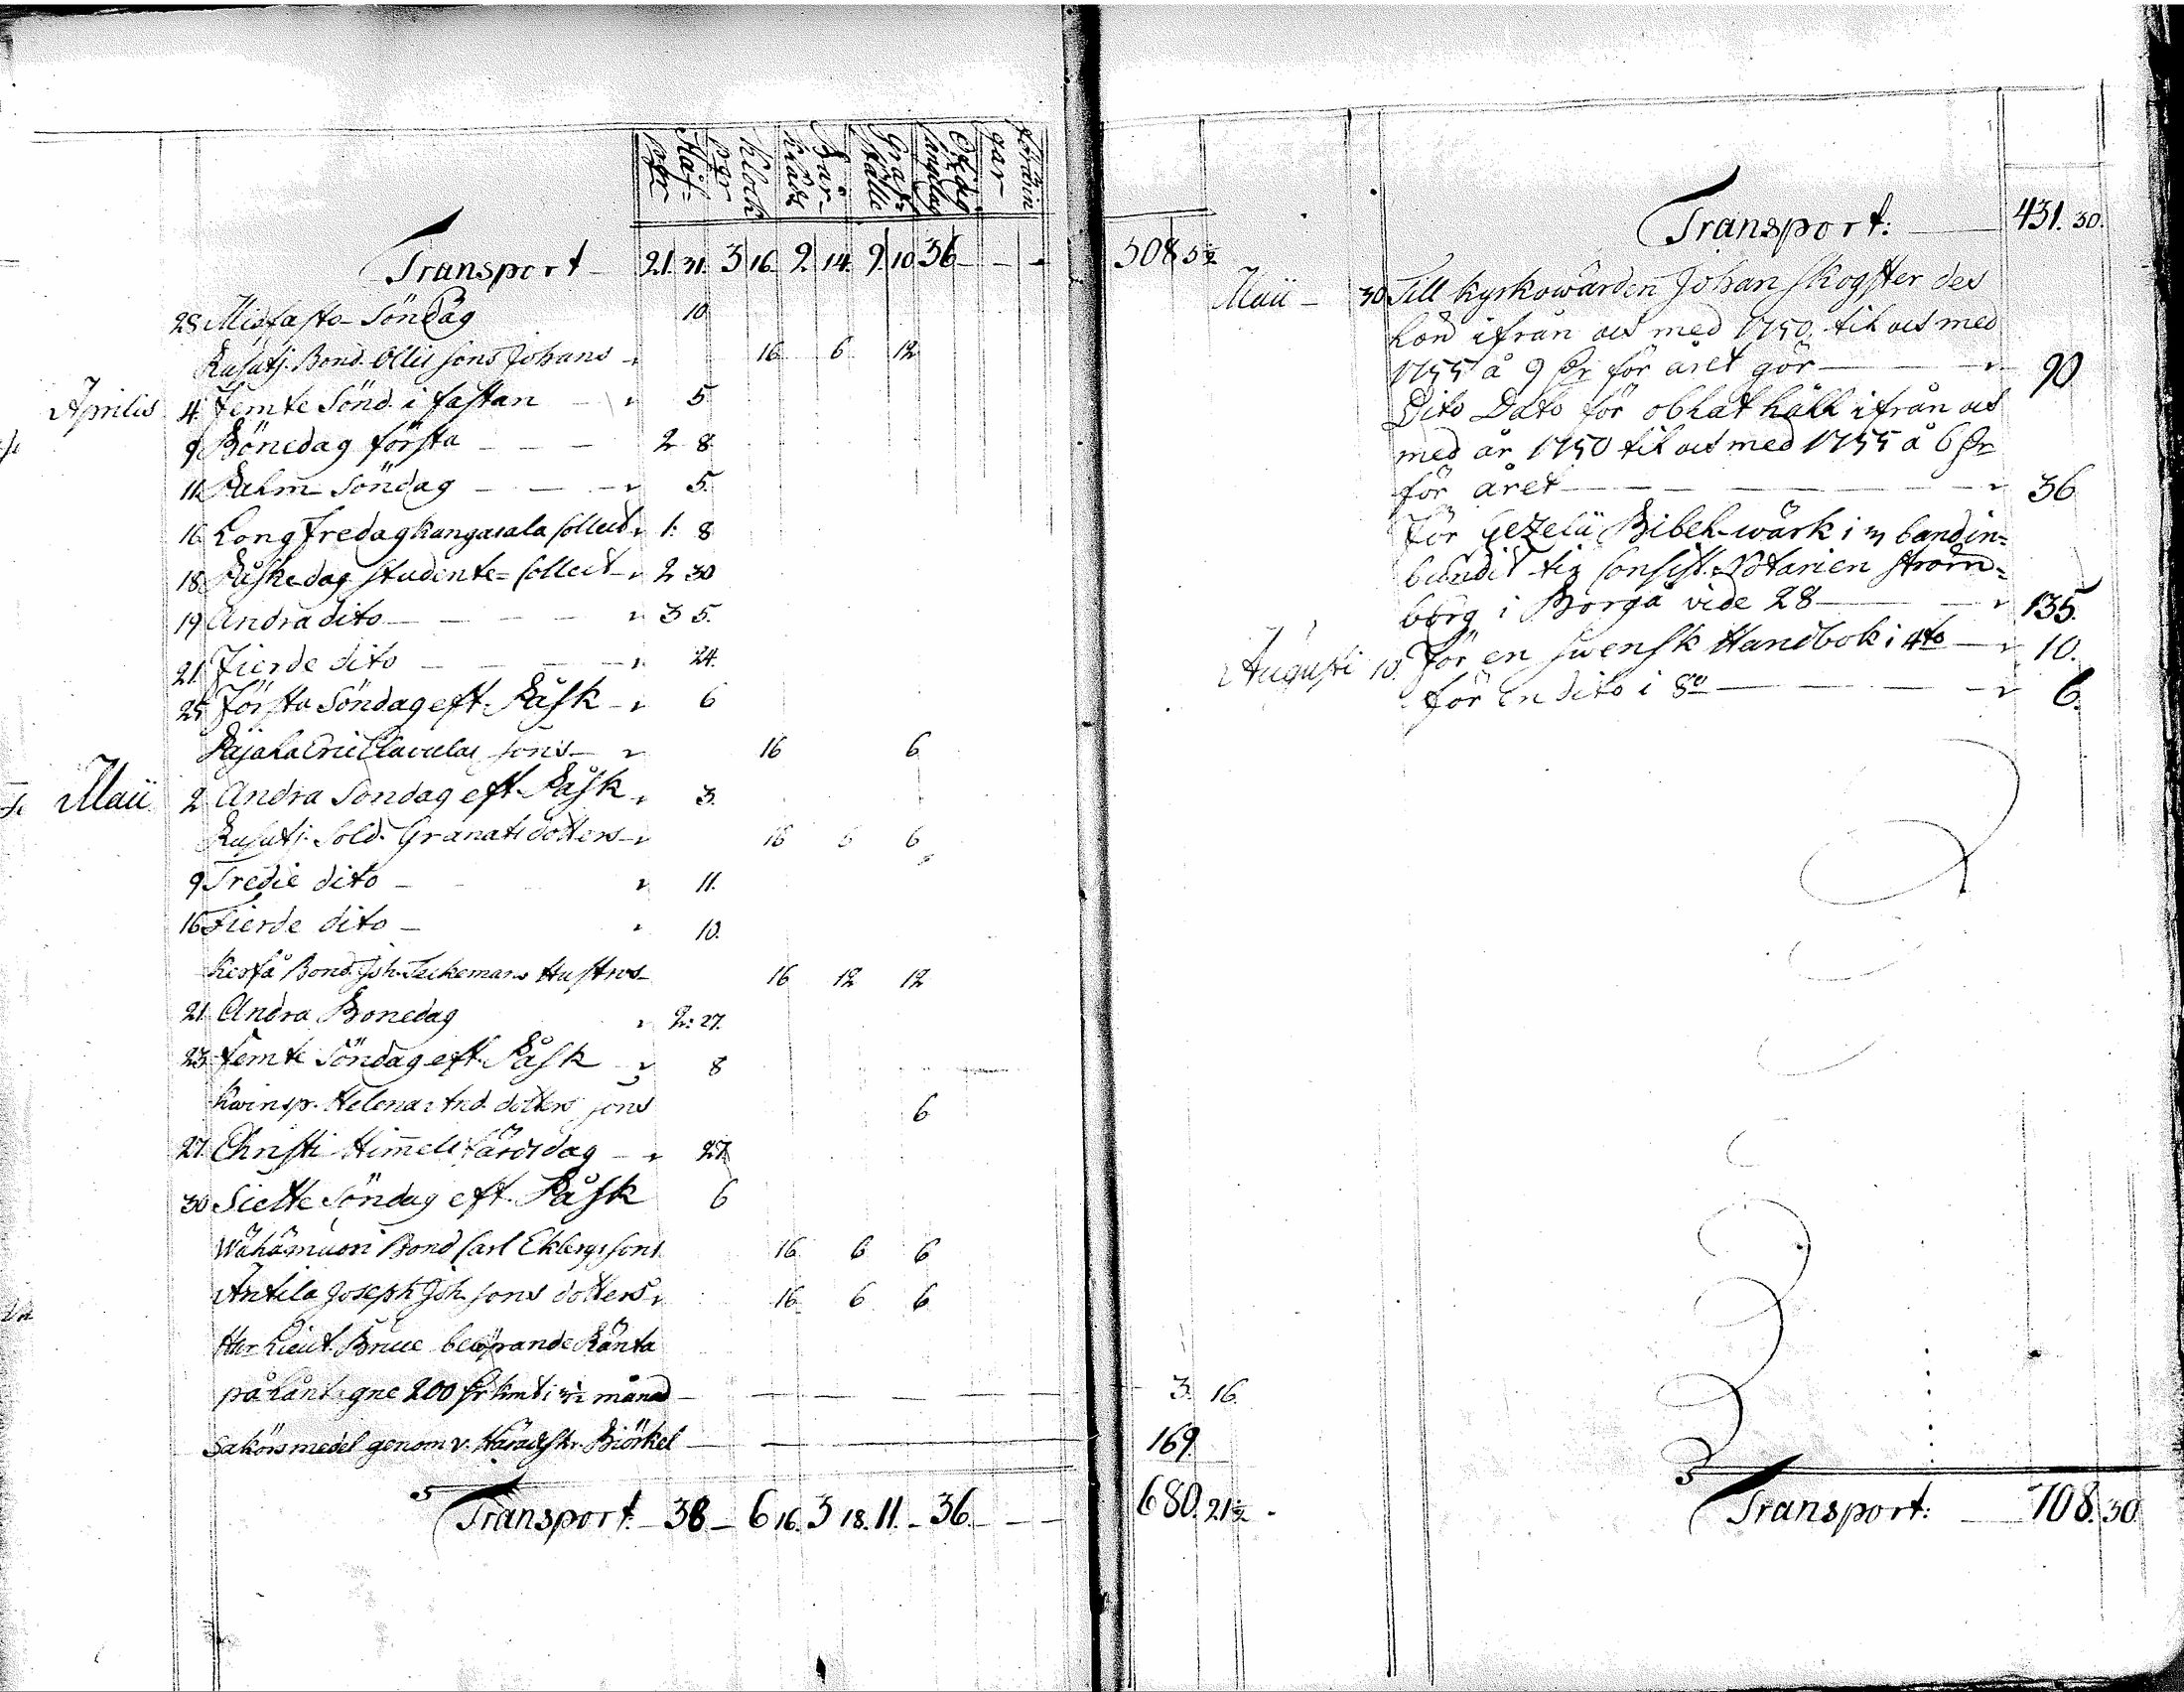 Håf-pgr Klock pgr Bår-kläde Graf-ställe
Transport - 21 31. 3 16 2 14. 9. 10 36 - - - 508 5½
28 Midfasto Söndag 10
Bond. Ollis sons Johans 16 6 12
Aprilis 4. Femte Sönd. i fastan - 5
9 Bönedag första - - - 2 8
11. Palm Söndag - - - 5.
16 Long fredag Kangasala Collect 1: 8
18 Påskedag Studente-Collect 2 30
19 Andra dito - - - 3 5.
21. Fierde dito - - - 24.
25 Första Söndag eft. Påsk - 6
sons 16 6
Maii 2 Andra Söndag eft Påsk 3.
Sold. Granats dotters 16 6 6
9 Tredie dito - 11.
16 Fierde dito - 10.
Bond. Joh. Hustrus 16 12 12
21. Andra Bönedag 2: 27.
23 Femte Söndag eft. Påsk 8
Helena And. dotters sons 6
27 Christi Himmelsfärdsdag - 27
30 Siette Söndag eft. Påsk 6
Wähämuori Bond Carl Ekbergs sons 16 6 6
Antila Joseph Joh. sons dotters 16 6 6
Hr Lieut. Bruce Ränta
på lånt. 200 månad - - - 3. 16.
Saköresmedel genom v. Häradskr. Biörkel - - - 169.
Transport. - 38 - 6 16. 3 18. 11. - 36. - - - 680. 21½.
Transport: - 431. 30.
Maii - 30 Till Kyrkowärden Johan Skogster des
lön ifrån och med 1750. til och med
1755 å 9 för året gör - 90
Dito Dato för oblat häll ifrån och
med år 1750 til och med 1755 å 6
för året - 36
För Gezelii Bibel-wärk i 3 band in-
bundit til Consist. Notarien Ström-
borg i Borgå vide 28 - 135.
Augusti 10. För en Swensk Handbok i 4to - 10.
för en dito i 8vo - 6.
Transport: - 708. 30.